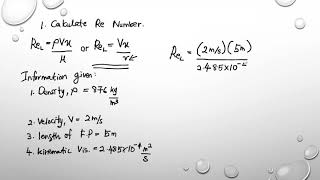 1. Calculate Re Number.
Re_L = ρVx/μ or Re_L = Vx/r
Re_L = (2m/s)(5m)/2.485×10⁻⁴
Information given:
1. Density, ρ = 876 kg/m³
2. Velocity, V = 2m/s
3. length of F.P = 5m
4. kinematic Vis. = 2.485×10⁻⁴ m²/s